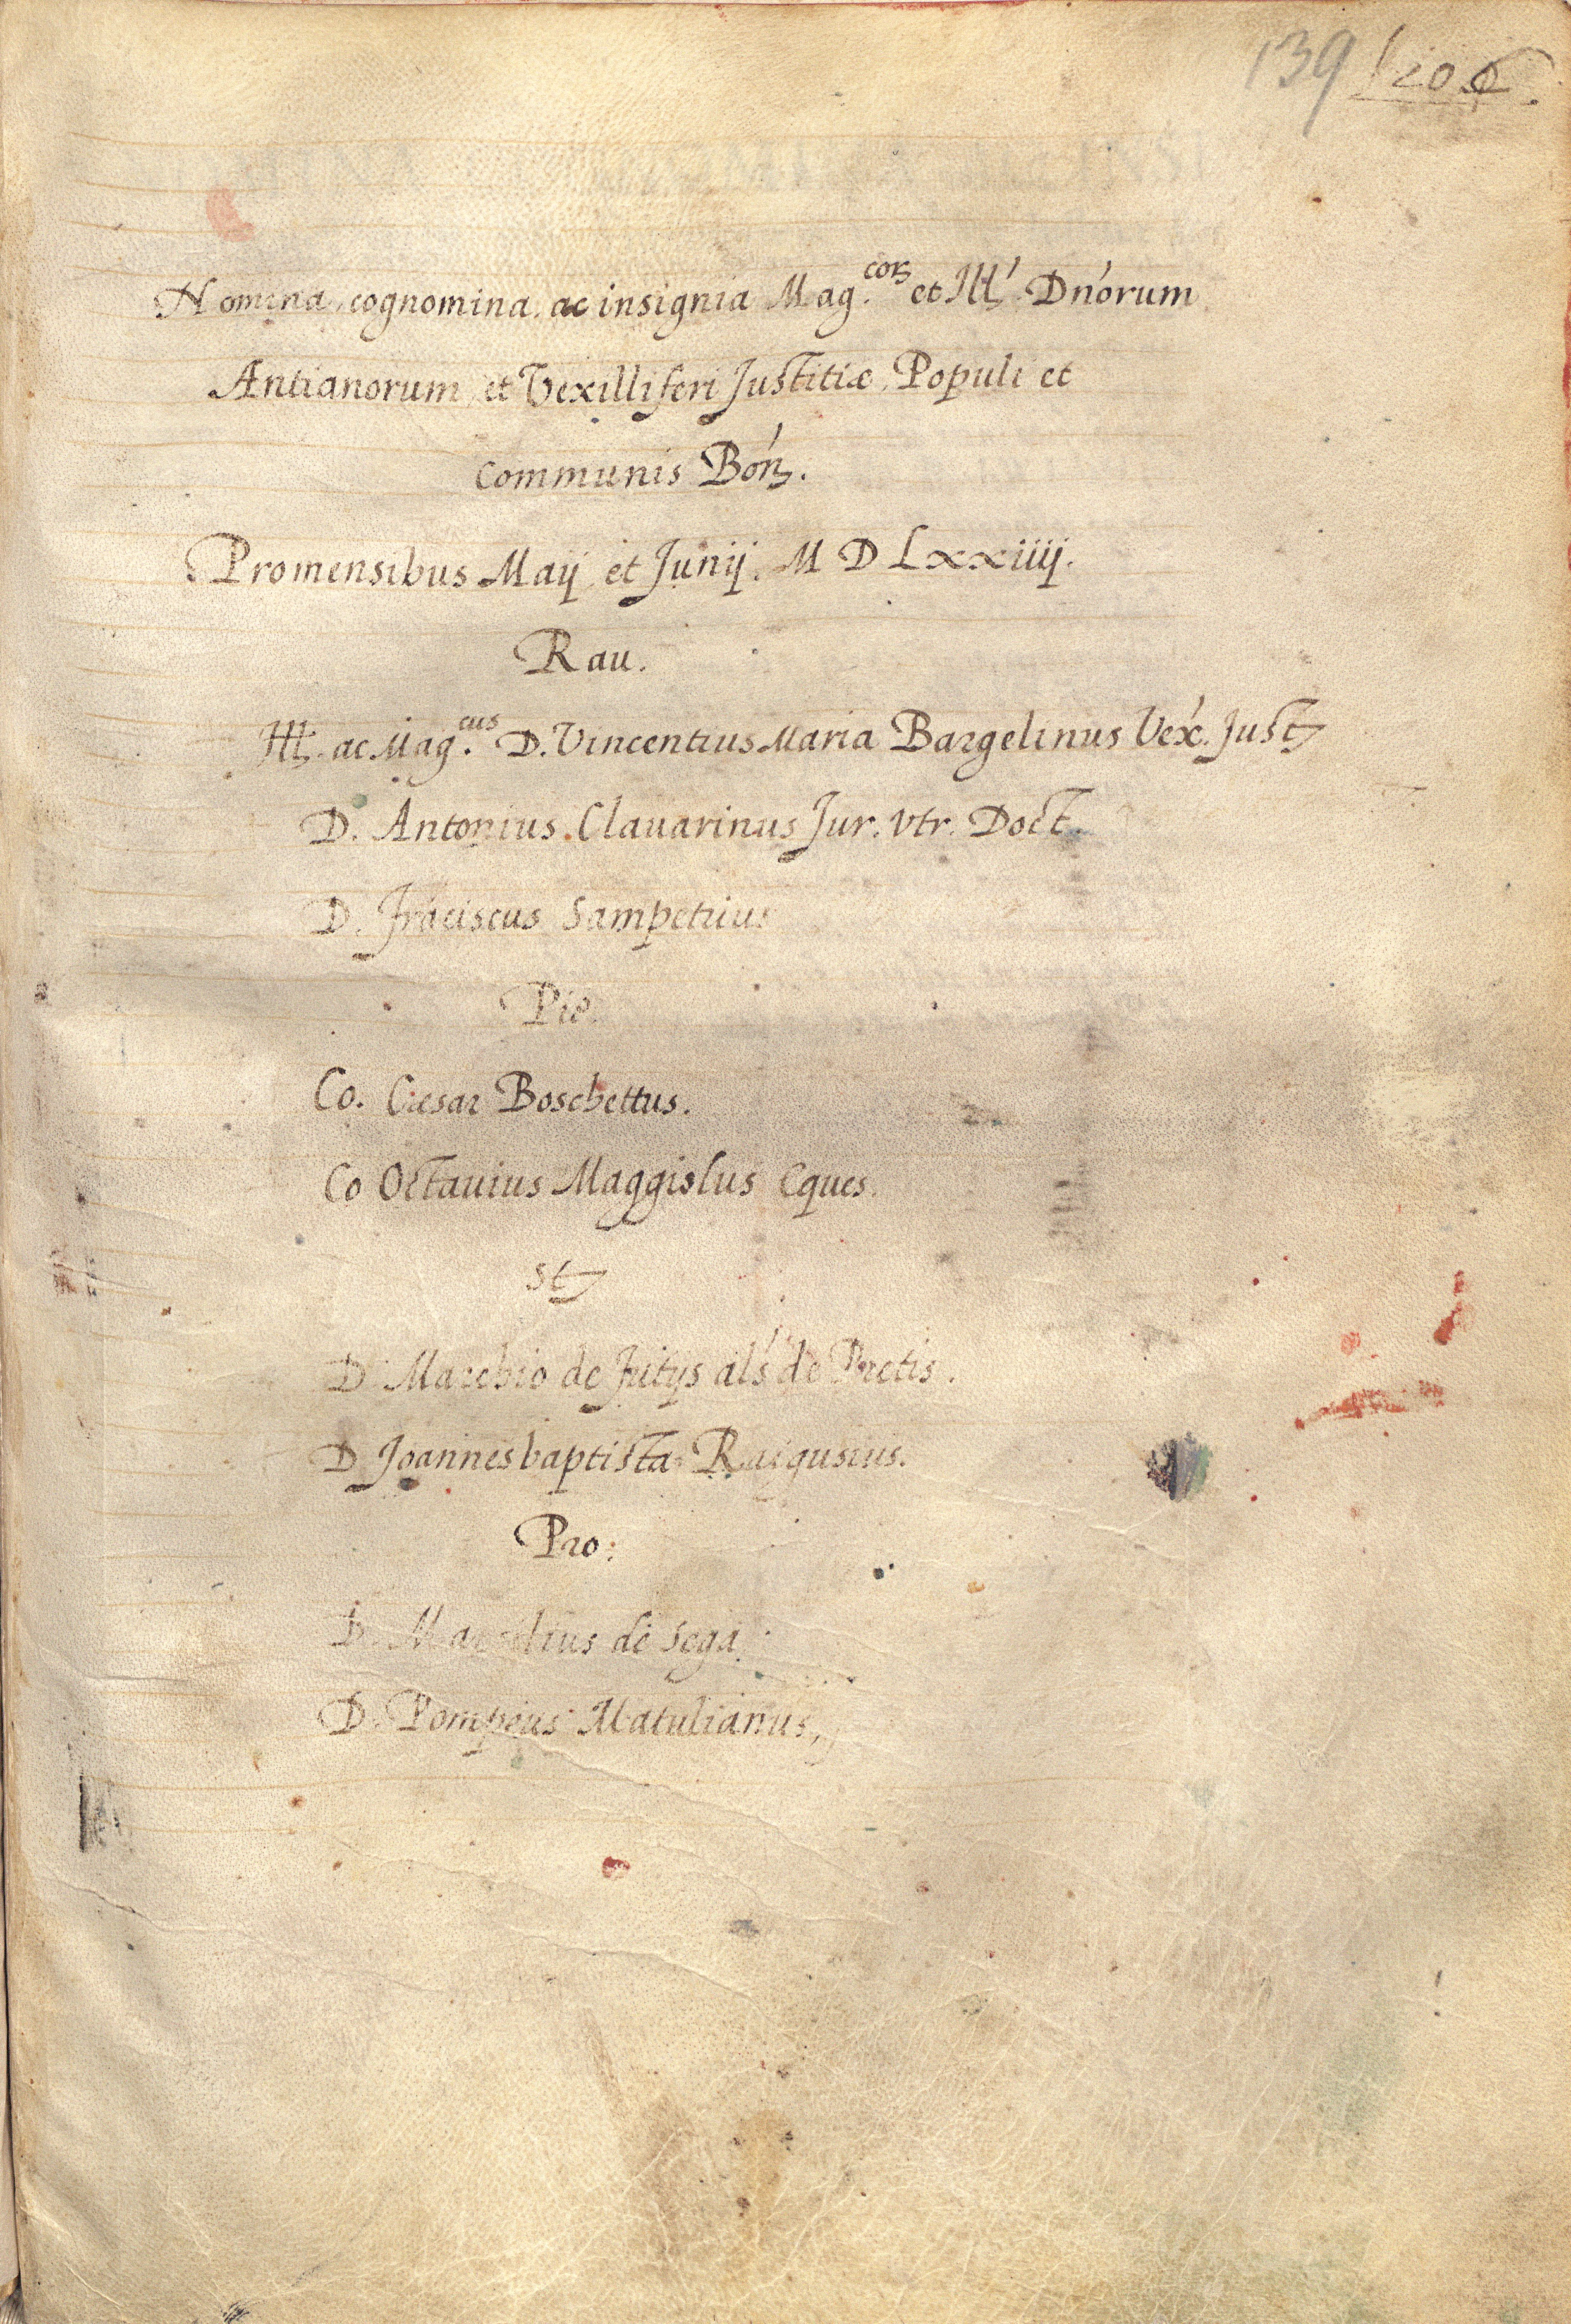 139
Nomina, cognomina, ac insignia Mag.cor et Ill. Dn'orum
Antianorum, et Vexilliferi Justitiæ, Populi et
communis Bon.
Pro mensibus Maij et Junij. M D Lxxiiij.
Rau.
Ill. ac Mag.cus D. Vincentius Maria Bargelinus Vex. Just
D. Antonius Clauarinus Jur. vtr. Doct.
D. Frāciscus Sampetrius
Pie.
Co. Cæsar Boschettus.
Co Octauius Maggiolus Eques.
St
D. Marchio de als de Pretis.
D Joannes baptista Raigusius.
Pro:
D. de Sega.
D. Pompeius Matulianus,